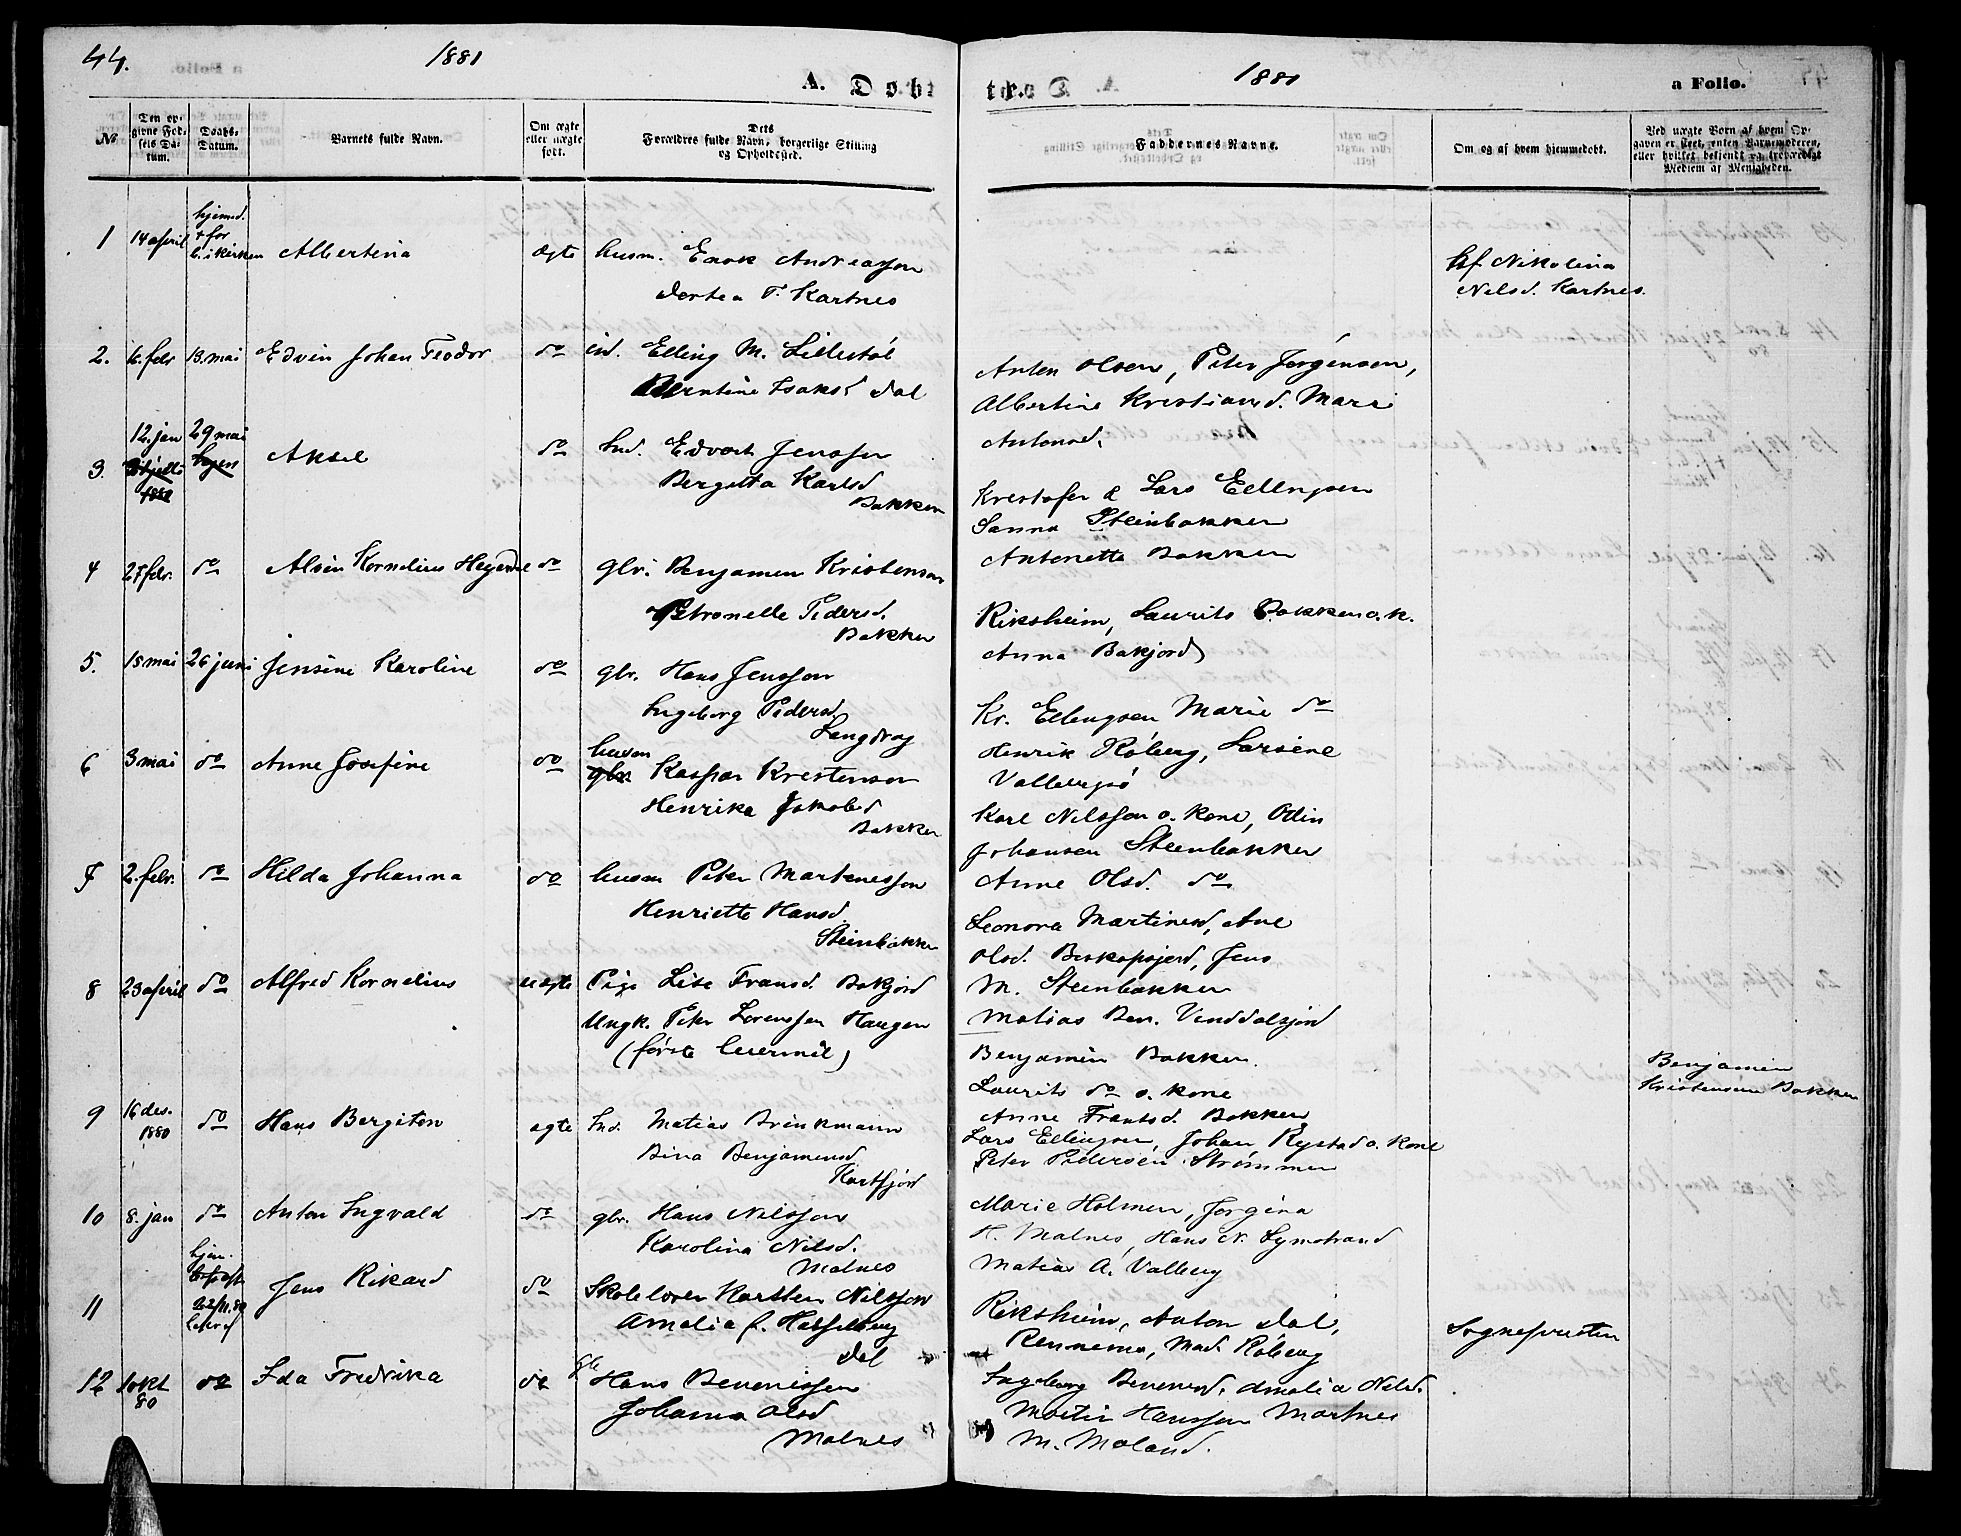 44.
1881
A. Døbt
1881
a Folio.
№
Den op-
givne Fød-
sels Da-
tum.
Daabs-
Datum.
Barnets fulde Navn.
Om ægte
eller uægte
født.
Dets
Forældres fulde Navn, borgerlige Stilling
og Opholdssted.
Faddernes Navne.
Om og af hvem hjemmedøbt.
Ved uægte Børn af hvem Op-
gaven er skeet, enten Barnemoderen,
eller hvilket bekjendt og troværdigt
Medlem af Menigheden.
1 14 april Albertina ægte husm. Enok Andreassen
Dortea T. Kartnes
af Nikolina
Nilsd. Kartnes.
2. 16. febr 13. mai Edvin Johan Teodor do ind. Elling M. Lillestøl
Berntine Isaksd Dal
Anton Olsen, Peter Jørgensen,
Albertine Kristiansd. Marie
Antonsd.
3. 12. jan 29 mai Aksel do Ind. Edvart Jenssen
Bergitta Karlsd
Bakken
Kristofer & Lars Ellingsen
Sanna Steinbakken
Antonette Bakken
4 27 febr. do Alvin Kornelius do gbr. Benjamin Kristensen
Petronelle Pedersd.
Bakken
Riksheim, Laurits Bakken o. k.
Anna Bakjord
5. 15 mai 26 juni Jensine Karoline do gbr. Hans Jenssen
Ingeborg Pedersd.
Langvag
Kr. Ellingsen Marie do
Henrik Røberg, Larsine
6 3 mai do Anne Josefine do husm
gbr Kaspar Kristensen
Henrika Jakobsd
Bakken
Karl Nilssen o. kone, Odin
Johansen Steinbakken
Anne Olsd. do
7 2. febr. do Hilda Johanna do husm Peter Martinessen
Henriette Hansd.
Steinbakken
Leonora Martinesd, Ane
Olsd. Beskopsjord, Jens
M. Steinbakken
Matias Ben.
8 23 april do Alfred Kornelius uægte Pige Lise Fransd. Bakjord
Ungk. Peter Lorenssen Haugen
(første leiermål)
Benjamin Bakken.
Laurits do o. kone
Anne Frantsd. Bakken
Benjamin
Kristensen Bakken
9 16 des. 1880 do Hans Bergiton ægte Ind. Matias Brinkmann
Bina Benjaminsd
Kartfjord
Lars Ellingsen, Johan Rystad o. kone
Peter Pedersen Strømmen
10 8. jan do Anton Ingvald do gbr. Hans Nilssen
Karolina Nilsd.
Malnes
Marie Holmen, Jørgina
H. Malnes, Hans N. Lynstrand
Matias A. Valberg
11 Jens Rikard do Skolelærer Karsten Nilssen
Amalia f. Hasselberg
Dal
Riksheim, Anton Dal,
Rennemo, Mad. Røberg
Sognepresten
12 1 okt 80 do Ida Fredrika do gbr Hans Benonissen
Johanna Olsd
Malnes
Ingeborg Benonisd. Amalia Nilsd.
Martin Hanssen Martnes
M. Moland.